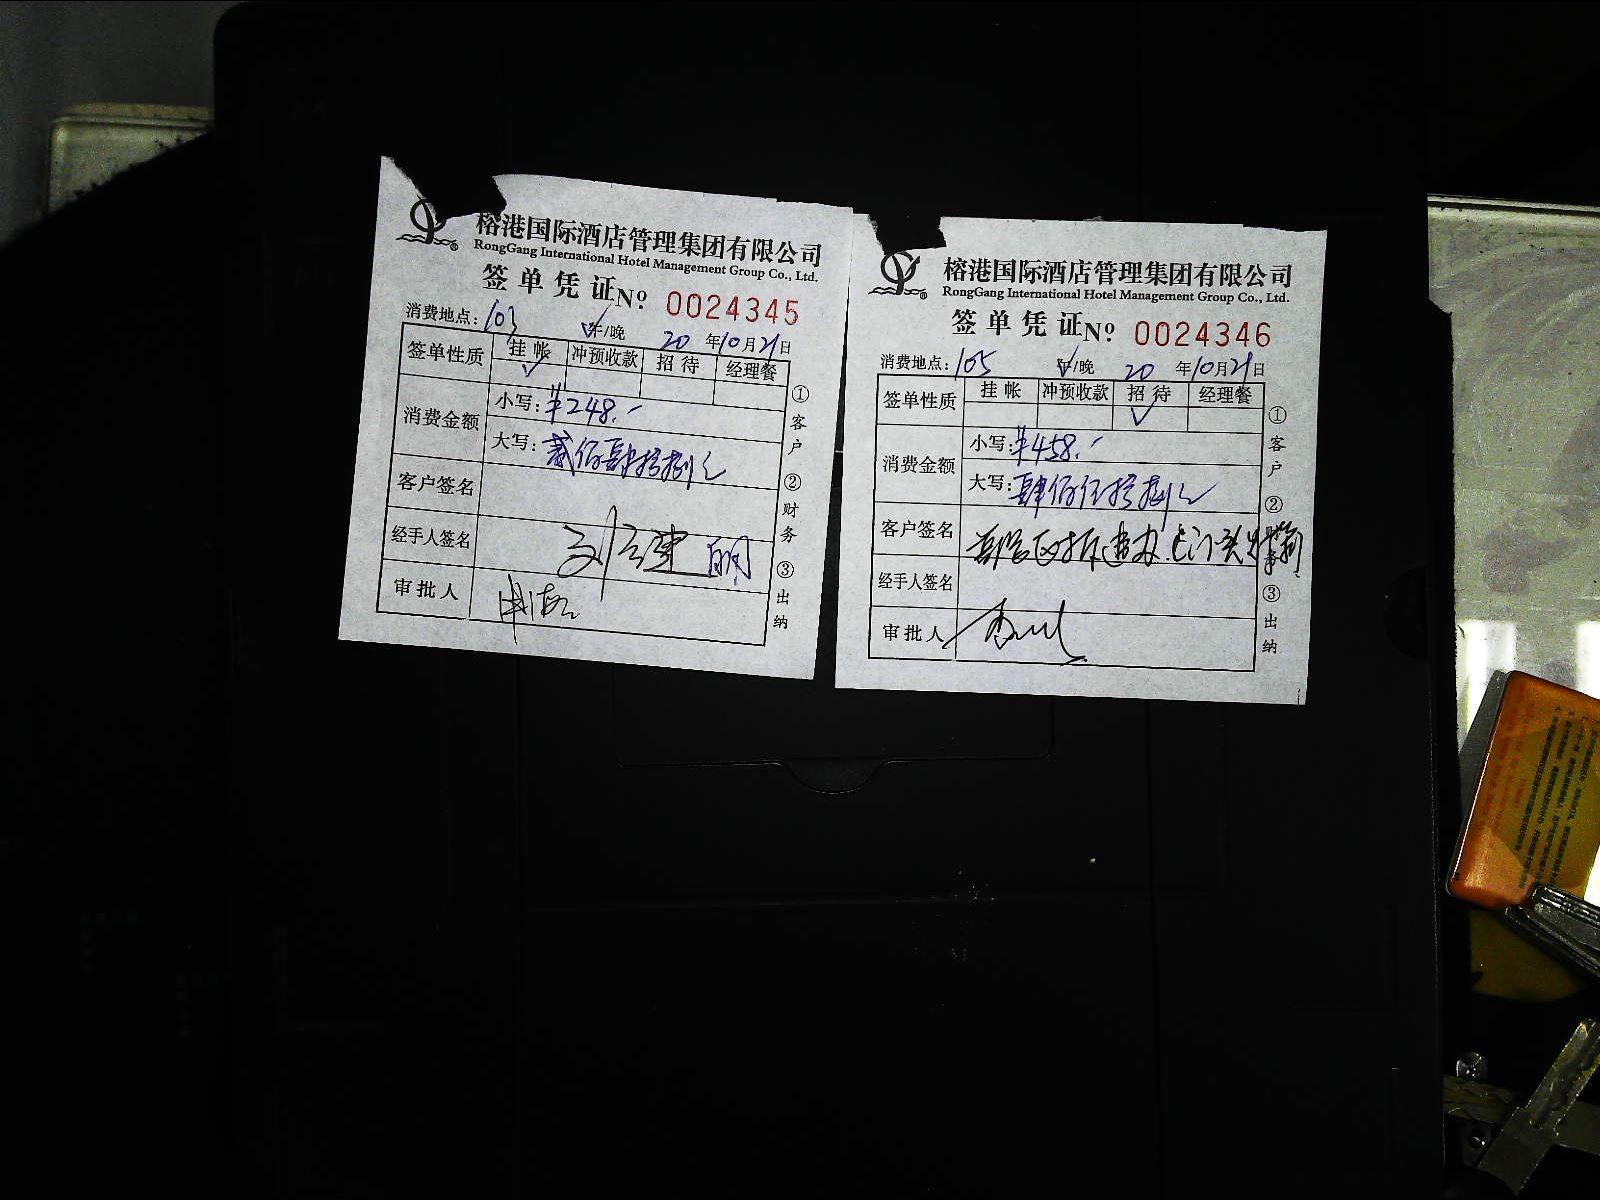 榕港国际酒店管理集团有限公司
RongGang International Hotel Management Group Co., Ltd.
签单凭证 Nº 0024345
消费地点: 103 午/晚 20 年10月21日
签单性质 挂帐 冲预收款 招待 经理餐
✓
消费金额
小写: ¥248.-
大写: 贰佰肆拾捌元
客户签名
经手人签名
审批人
①客户 ②财务 ③出纳
榕港国际酒店管理集团有限公司
RongGang International Hotel Management Group Co., Ltd.
签单凭证 Nº 0024346
消费地点: 105 午/晚 20 年10月21日
签单性质 挂帐 冲预收款 招待 经理餐
✓
消费金额
小写: ¥458.-
大写: 肆佰伍拾捌元
客户签名
经手人签名
审批人
①客户 ② ③出纳